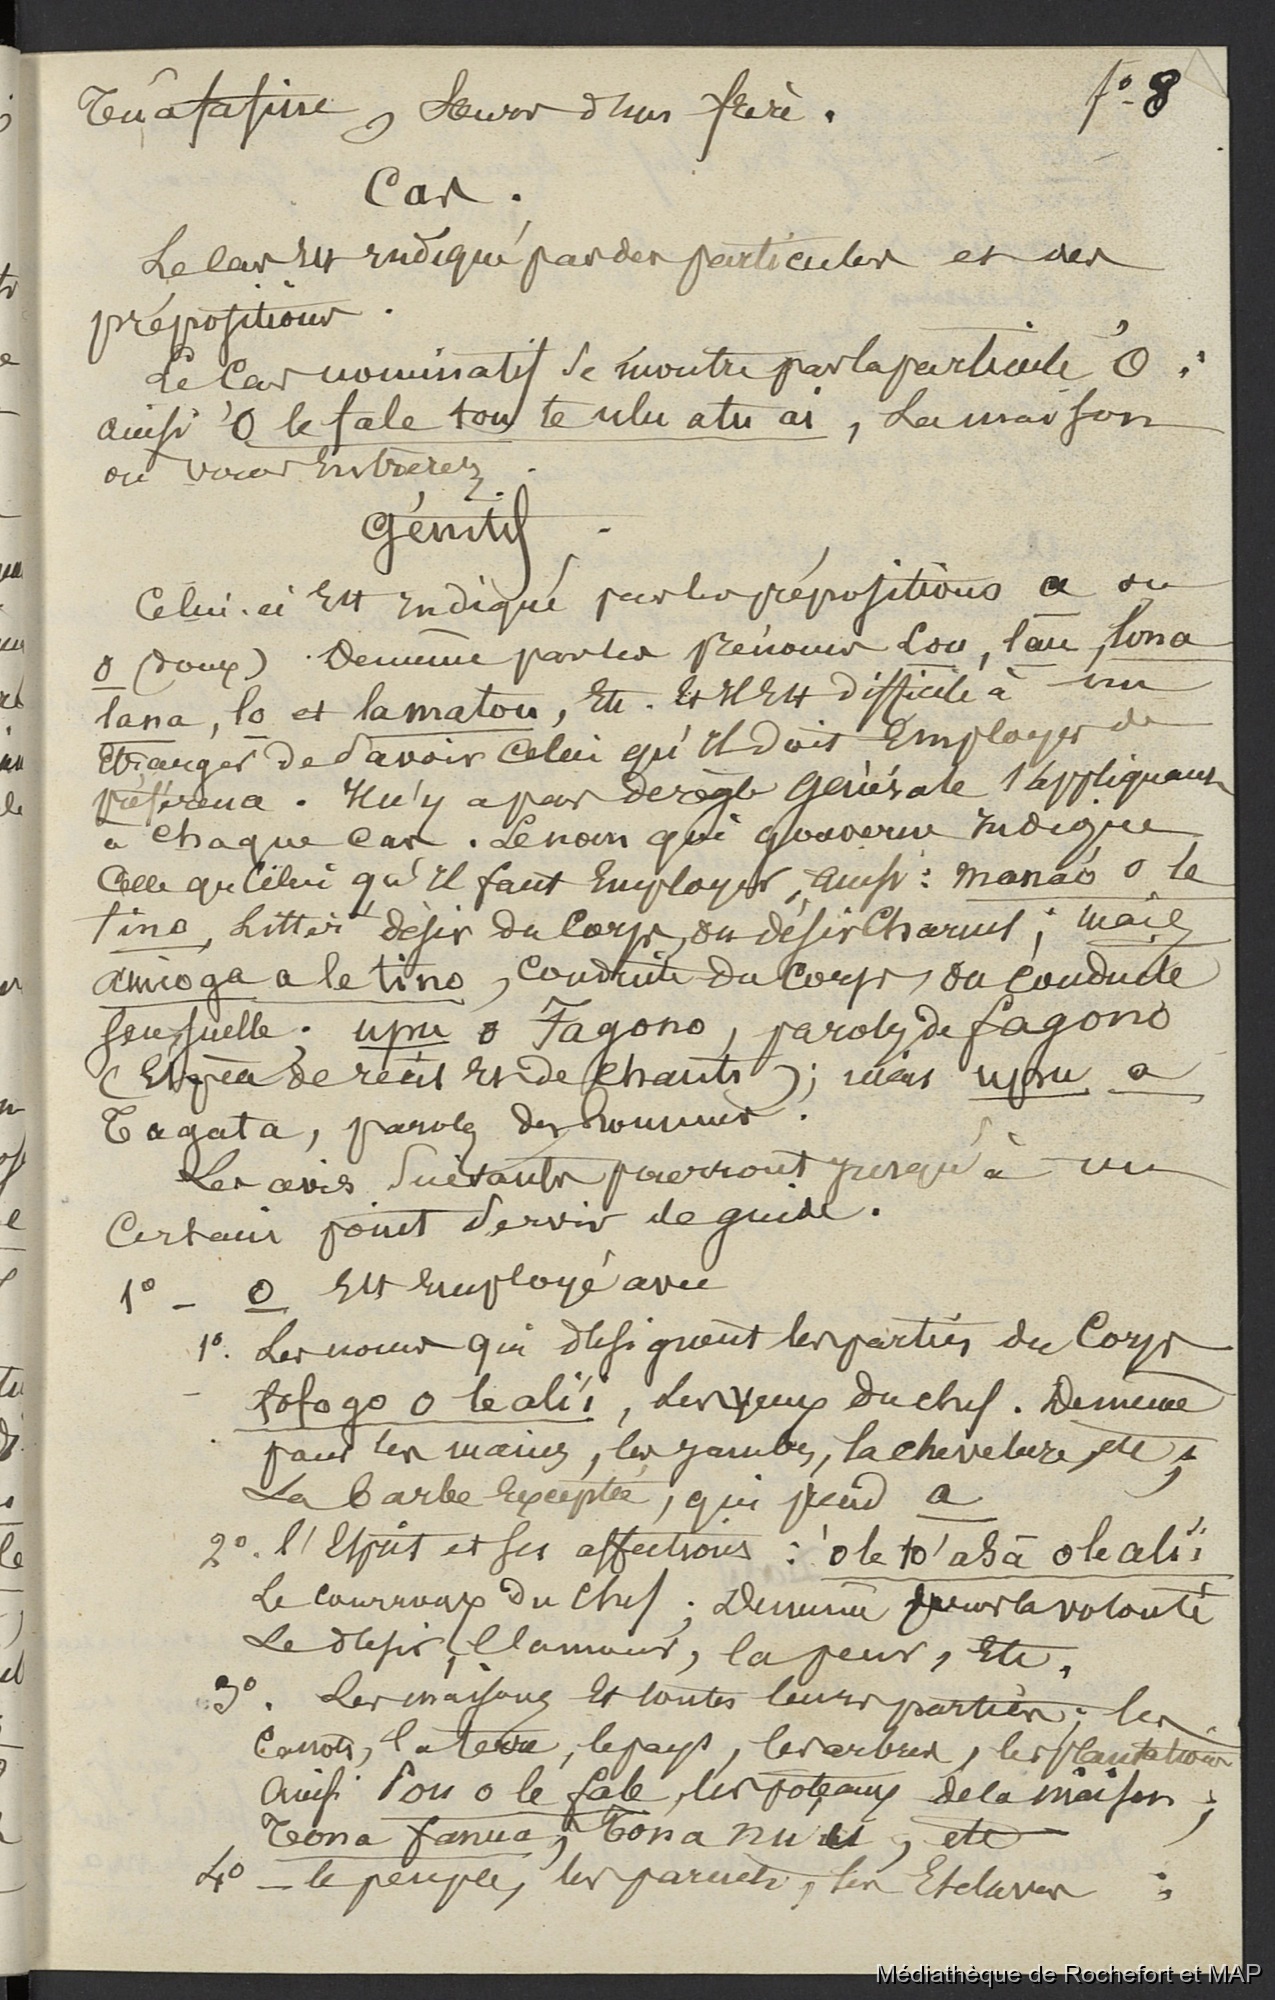 f° 8
Tuafafine, Sœurs d'un frère.
Cas.
Le cas est indiqué par des particules et des
prépositions.
Le Cas nominatif se montre par la particule 'O ;
ainsi 'O le fale tou te ulu atu ai, La maison
où vous entrerez.
Génitif.
Celui-ci est indiqué par les prépositions a ou
o (doux). De même par les prénoms Lou, lau, lona
lana, lo et la matou, Etc. Et il est difficile à un
Etranger de savoir celui qu'il doit Employer de
préférence. Il n'y a pas de règle Générale s'appliquant
à chaque cas. Le nom qui gouverne indique
celui qu'il faut Employer, ainsi : manaó o le
tino, Littér désir du Corps, ou désir Charnel ;
amioga a le tino, conduite du corps, ou conduite
sensuelle ; upu o Fagono, paroles de fagono
(Espèce de récits et de chants) ; mais upu a
Tagata, paroles des hommes.
Les avis suivants pourront jusqu'à un
Certain point servir de guide.
1° – o Est Employé avec
1°. Les noms qui désignent les parties du Corps
fofoga o le alí'i, Les yeux du chef. De même
pour les mains, les jambes, la chevelure, etc ;
La barbe Exceptée, qui prend a
2°. l'Esprit et ses affections : 'o le to'asā o le alí'i
Le courroux du Chef ; De même pour la volonté
Le désir, l'amour, la peur, Etc.
3°. Les maisons Et toutes leurs parties ; les
Canots, la terre, le pays, les arbres, les plantations
Ainsi Pou o le fale, les poteaux de la maison ;
Tona fanua, Tona nuu, etc
4° – le peuple, les parents, les Esclaves ;
Médiathèque de Rochefort et MAP